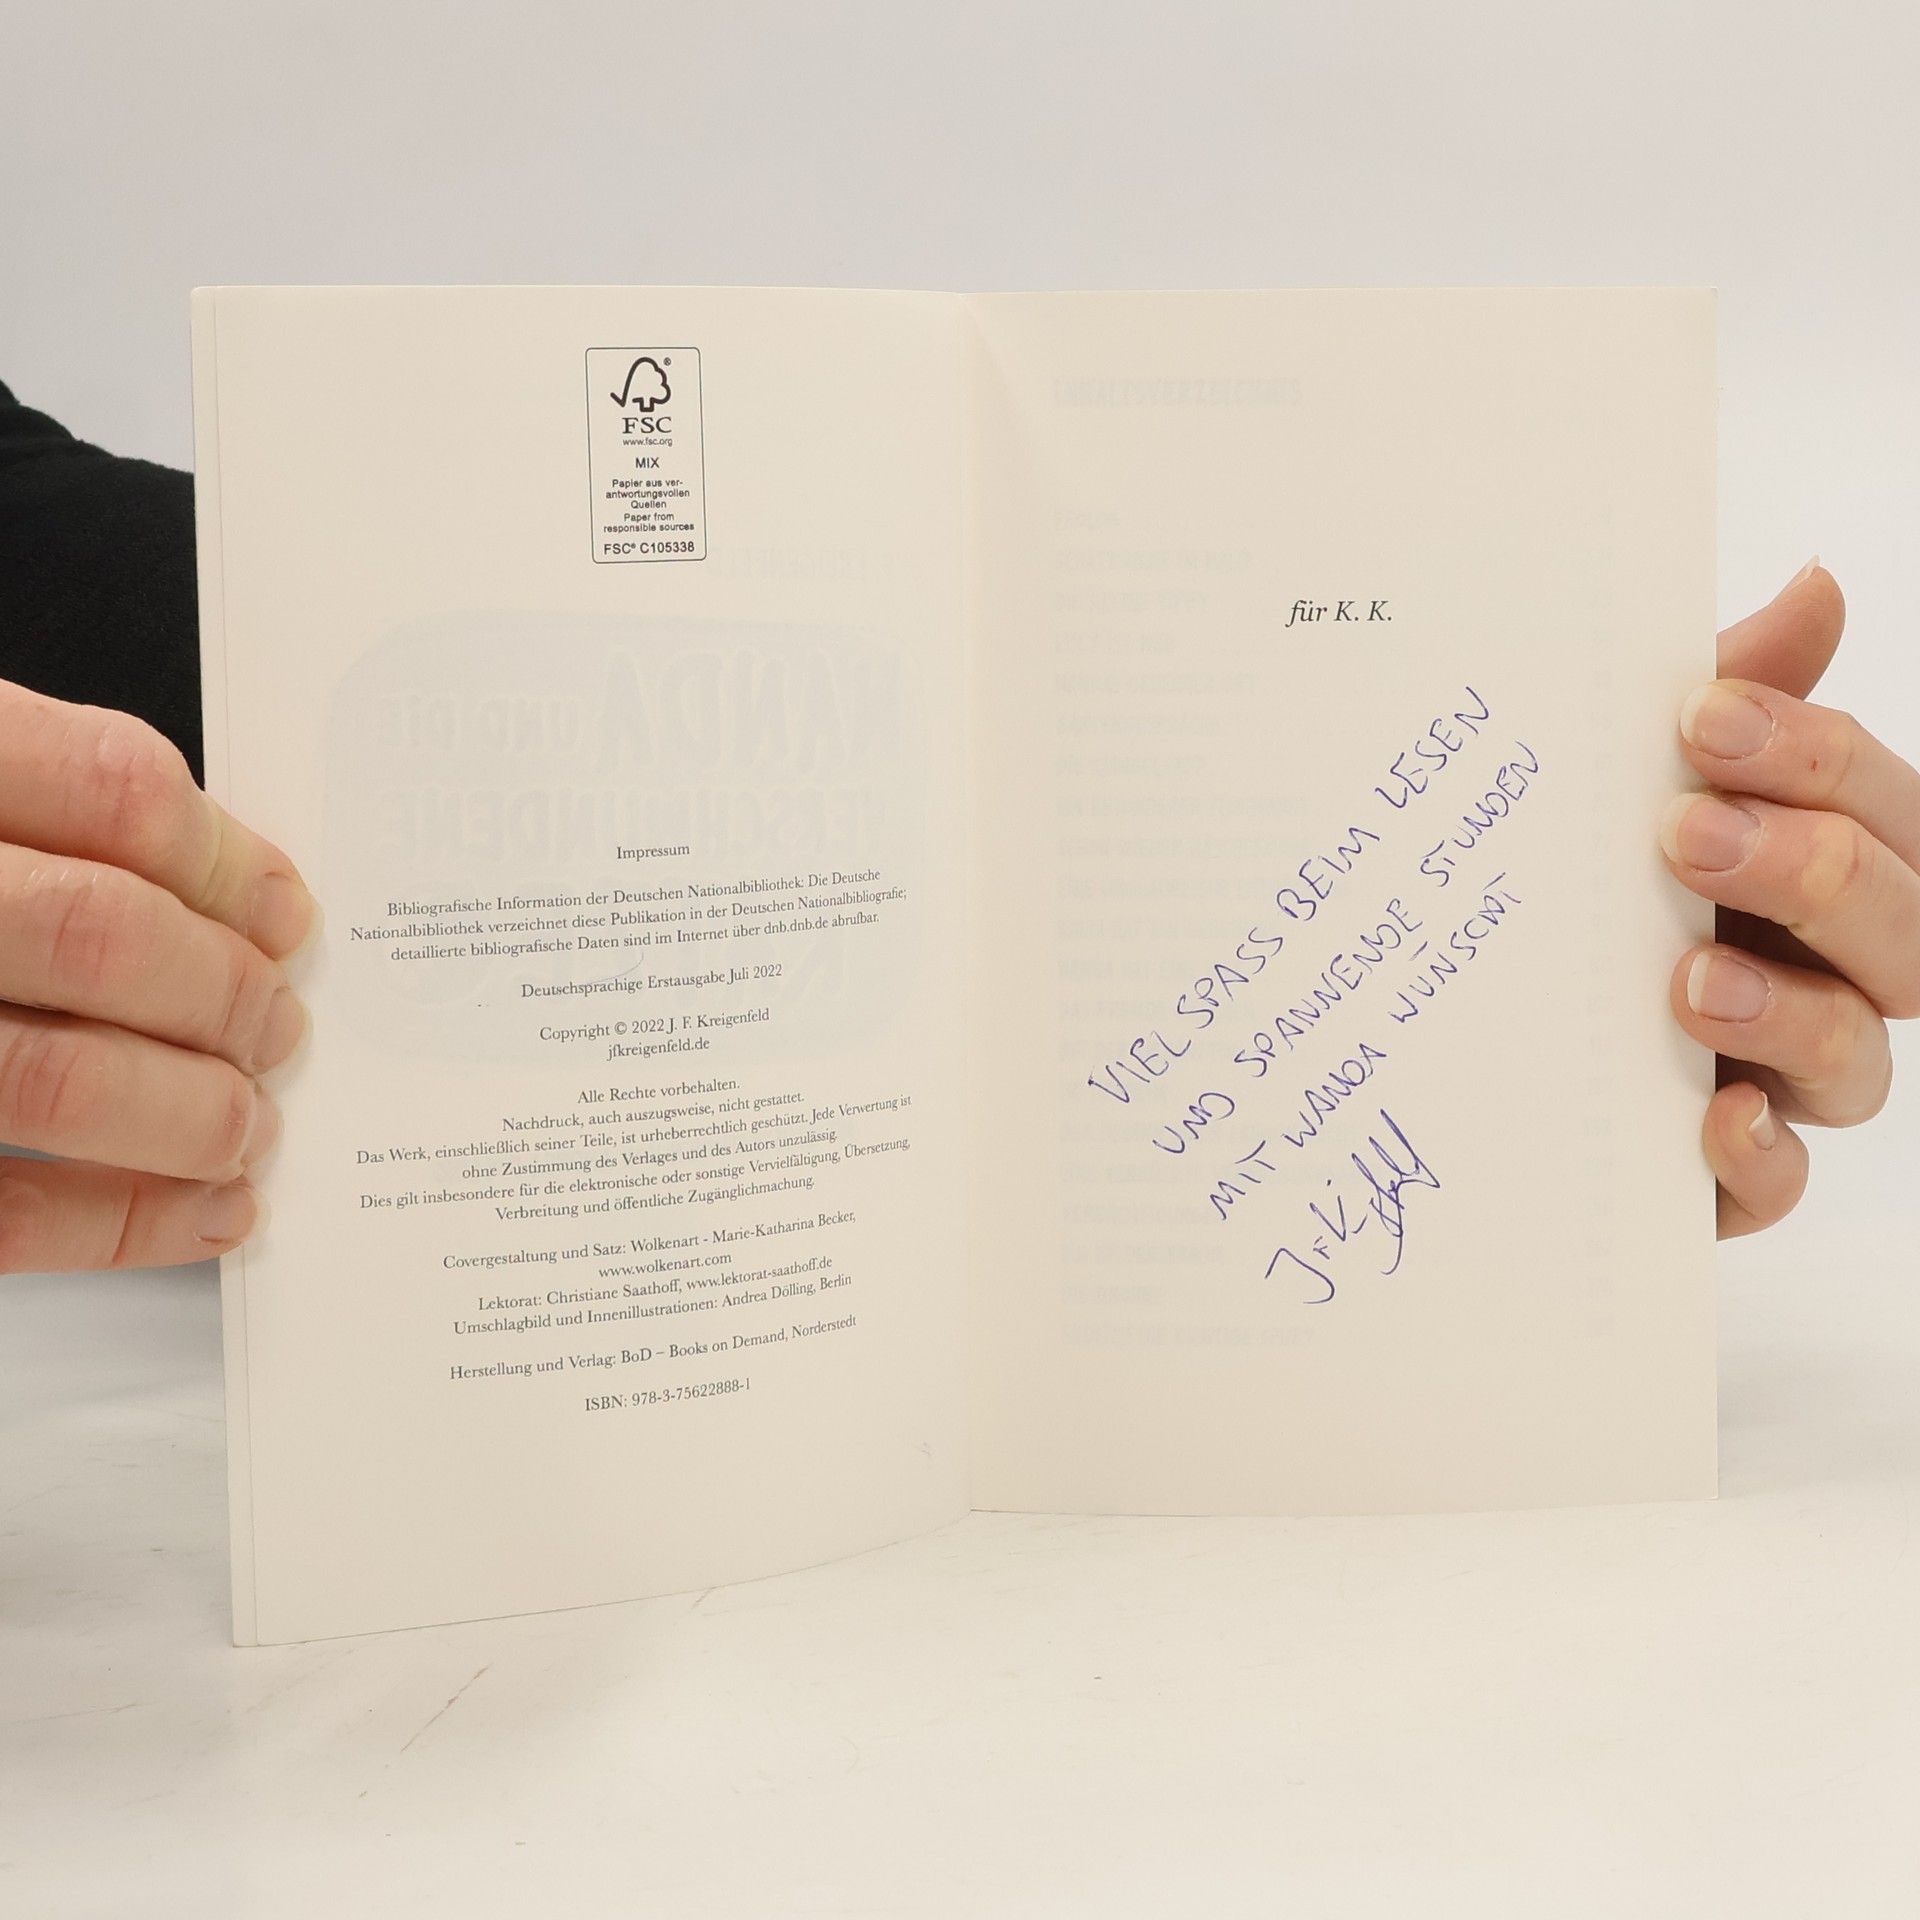 FSC®
www.fsc.org
MIX
Papier aus ver-
antwortungsvollen
Quellen
Paper from
responsible sources
FSC® C105338
Impressum
Bibliografische Information der Deutschen Nationalbibliothek: Die Deutsche
Nationalbibliothek verzeichnet diese Publikation in der Deutschen Nationalbibliografie;
detaillierte bibliografische Daten sind im Internet über dnb.dnb.de abrufbar.
Deutschsprachige Erstausgabe Juli 2022
Copyright © 2022 J. F. Kreigenfeld
jfkreigenfeld.de
Alle Rechte vorbehalten.
Nachdruck, auch auszugsweise, nicht gestattet.
Das Werk, einschließlich seiner Teile, ist urheberrechtlich geschützt. Jede Verwertung ist
ohne Zustimmung des Verlages und des Autors unzulässig.
Dies gilt insbesondere für die elektronische oder sonstige Vervielfältigung, Übersetzung,
Verbreitung und öffentliche Zugänglichmachung.
Covergestaltung und Satz: Wolkenart - Marie-Katharina Becker,
www.wolkenart.com
Lektorat: Christiane Saathoff, www.lektorat-saathoff.de
Umschlagbild und Innenillustrationen: Andrea Dölling, Berlin
Herstellung und Verlag: BoD – Books on Demand, Norderstedt
ISBN: 978-3-75622888-1
für K. K.
VIEL SPASS BEIM LESEN
UND SPANNENDE STUNDEN
MIT WANDA WÜNSCHT
INHALTSVERZEICHNIS